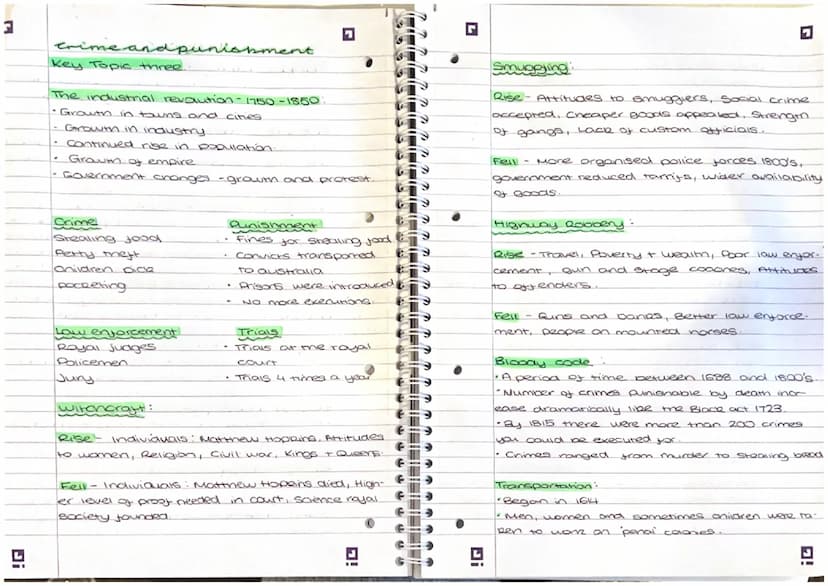 Crime and punishment
Key Topic three
The industrial revolution - 1750 - 1850:
· Growth in towns and cities
· Growth in industry
· Continued rise in population
· Growth of empire
· Government changes - growth and protest.
Crime
Stealing food
Petty theft
Children pick
pocketing
Punishment
· Fines for stealing food
· Convicts transported
to australia
· Prisons were introduced
· No more executions.
Law enforcement
Royal Judges
Policemen
Jury
Trials
· Trials at the royal
court
· Trials 4 times a year
Witchcraft:
Rise - Individuals: Matthew Hopkins, Attitudes
to women, Religion, Civil war, Kings + Queens.
Fell - Individuals: Matthew Hopkins died, High-
er level of proof needed in court, Science royal
society founded.
Smuggling:
Rise - Attitudes to smugglers, Social crime
accepted, Cheaper goods appealed, Strength
of gangs, Lack of custom officials.
Fell - More organised police forces 1800's,
government reduced tarrifs, wider availability
of goods.
Highway Robbery:
Rise - Travel, Poverty + wealth, Poor law enfor-
cement, Gun and stage coaches, Attitudes
to offenders.
Fell - Guns and banks, Better law enforce-
ment, people on mounted horses.
Bloody code:
· A period of time between 1688 and 1800's.
· Number of crimes punishable by death incr-
ease dramarically like the Black act 1723.
· By 1815 there were more than 200 crimes
you could be executed for.
· Crimes ranged from murder to stealing bread
Transportation:
· Began in 1614
· Men, women and sometimes children were ta-
ken to work on 'penal' colonies.